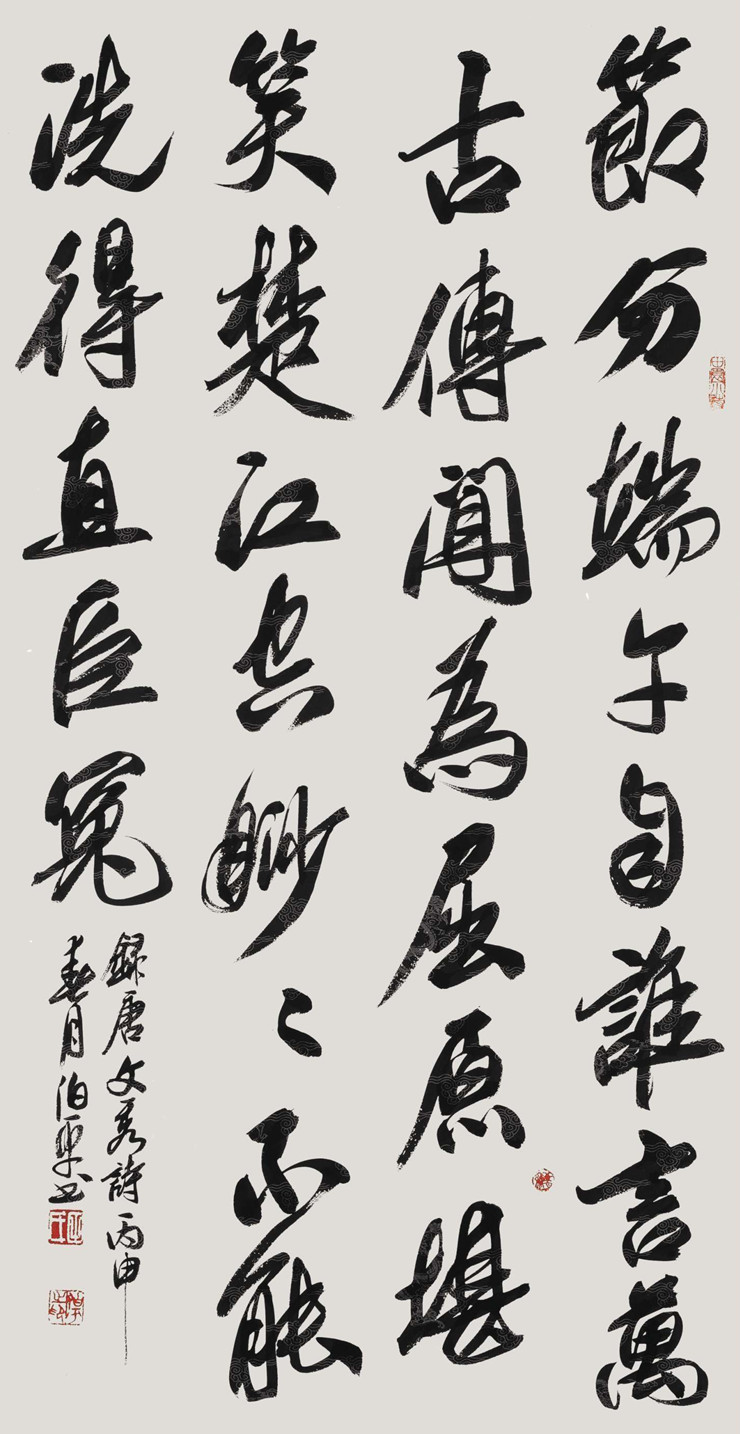 節分端午自誰言萬
古傳聞為屈原堪
笑楚江空渺〻不能
洗得直臣冤
録唐文秀詩丙申
春月伯平书